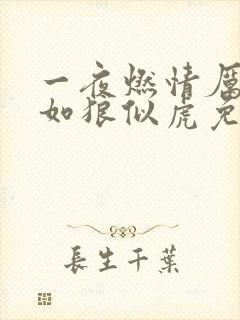 一夜燃情厲
如狼似虎免
長生千葉